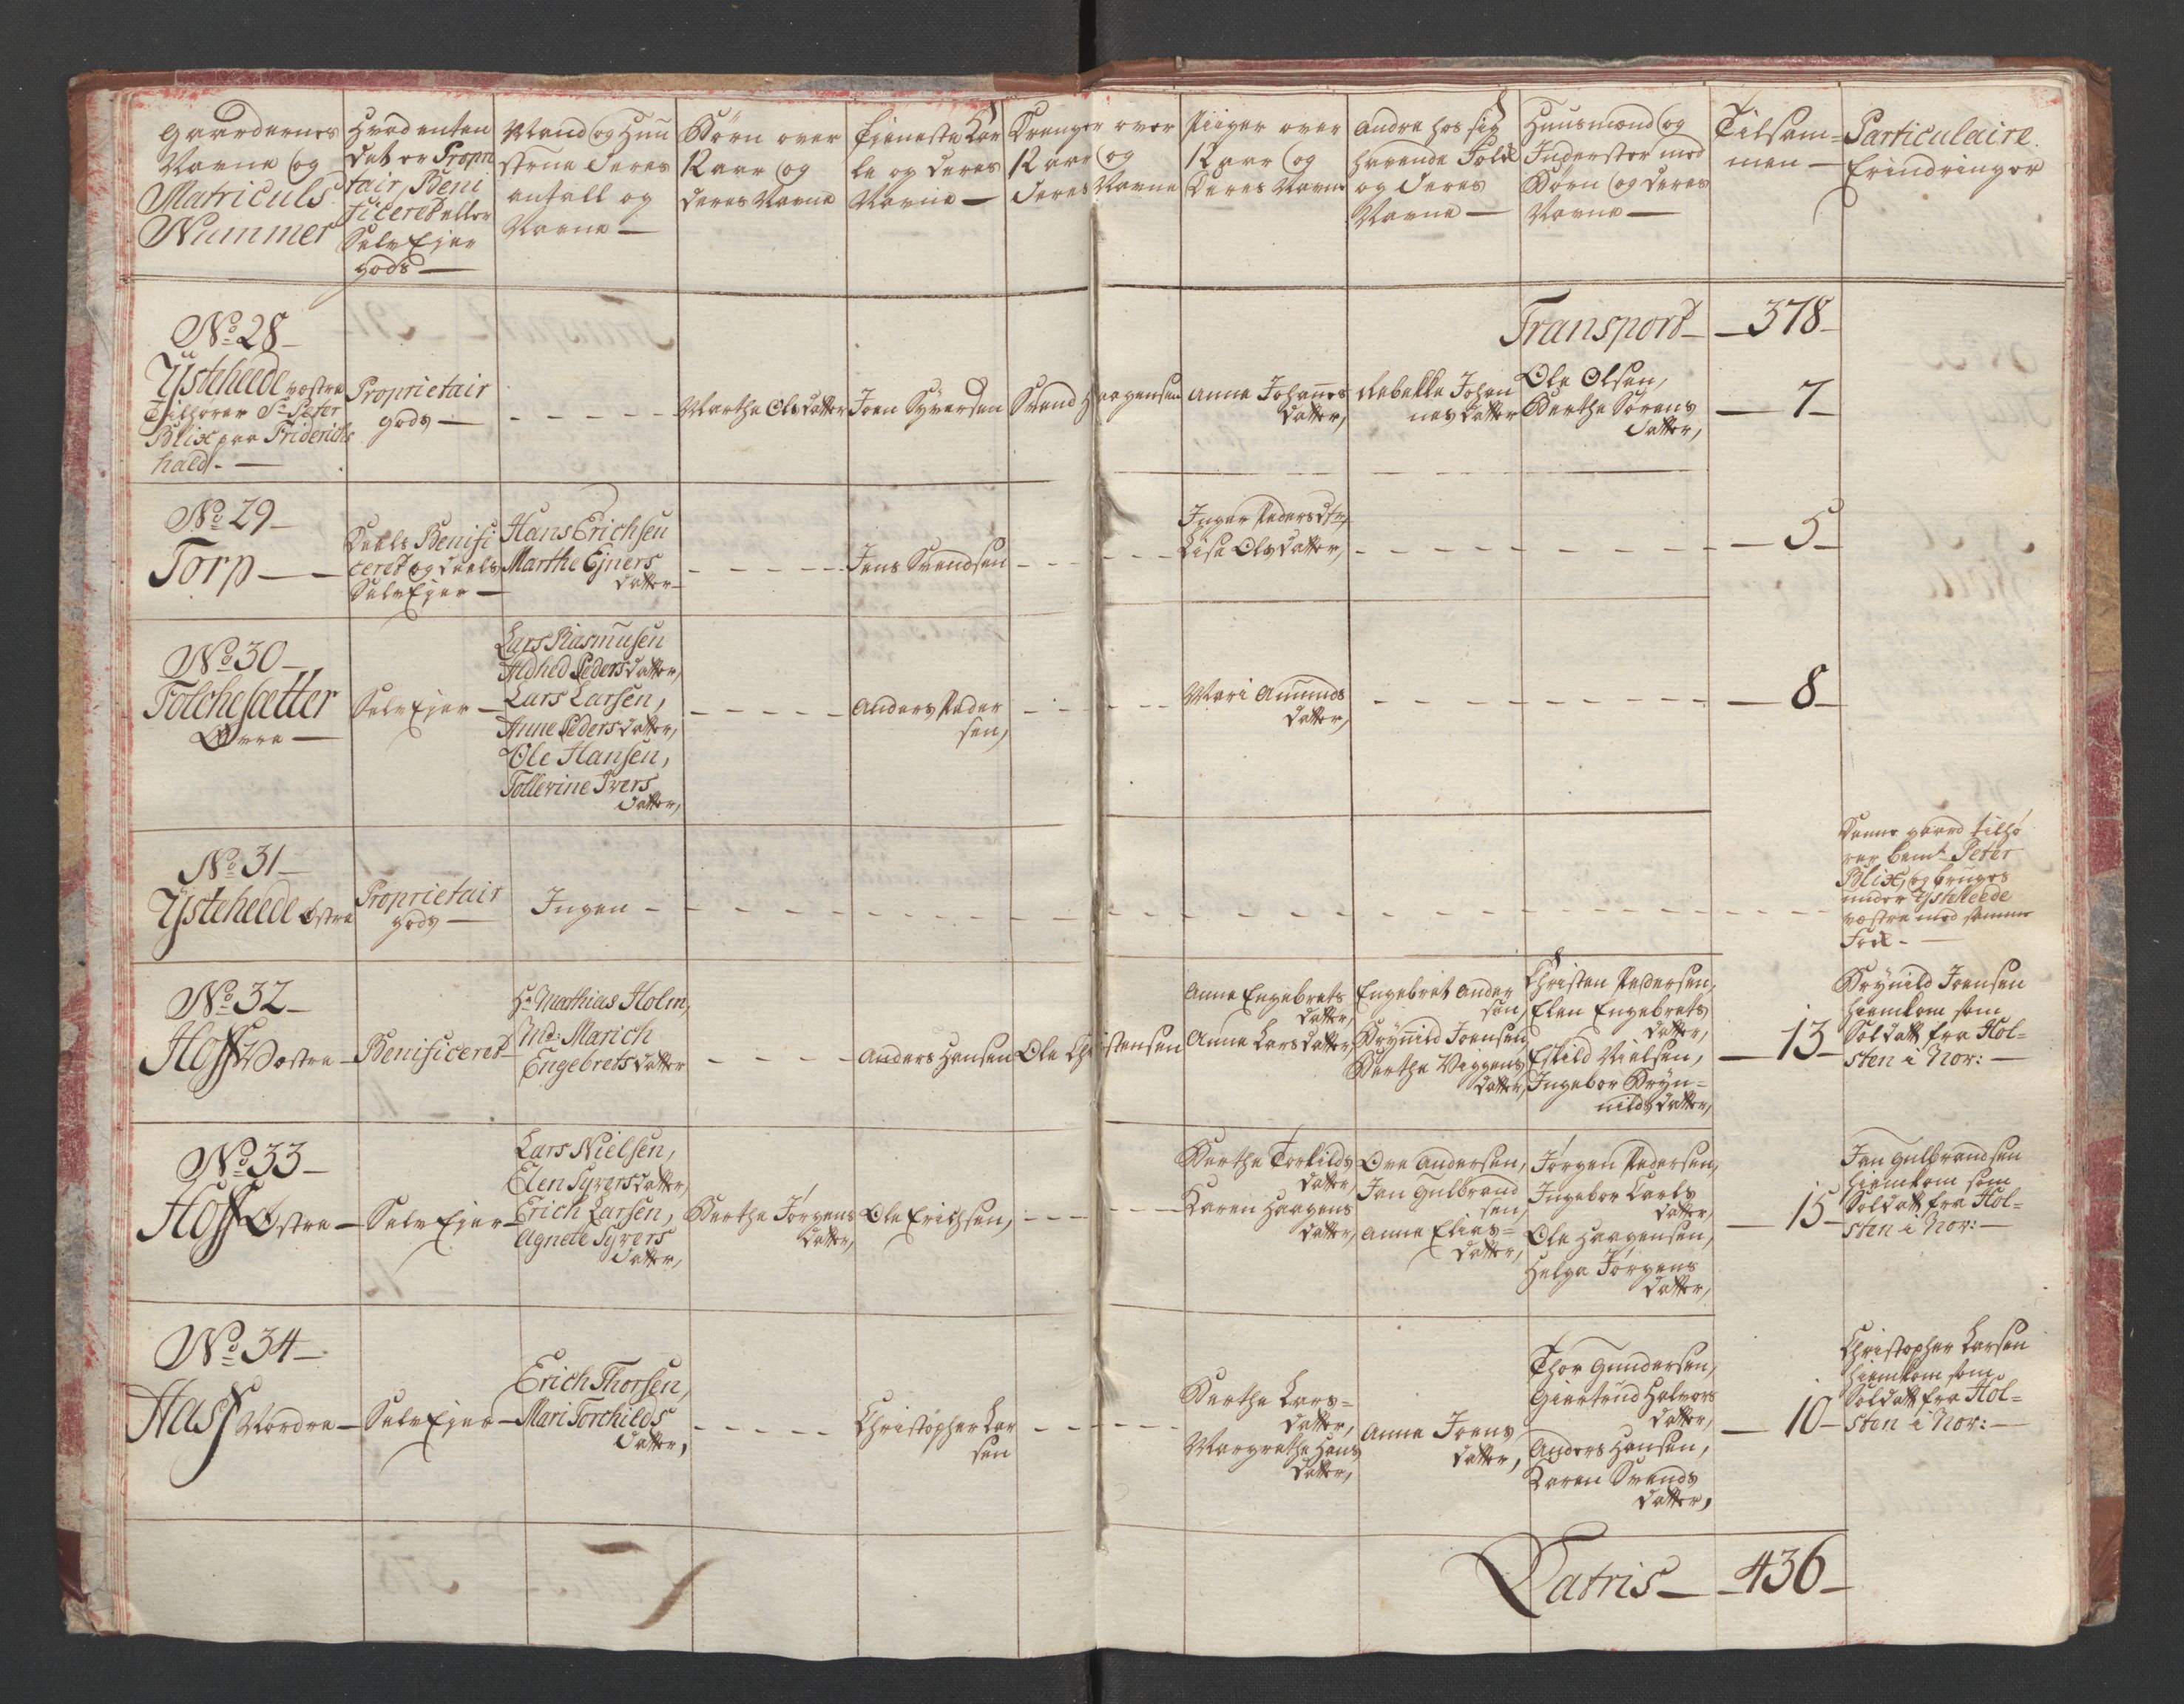 Gaardernes
Navne og
Matriculs
Nummer
Hvad enten
det er Propri
tair, Beni
ficeret eller
Selv Ejer
gods —
Mand og Huu
strue deres
antall og
Navne —
Börn over
12 aar og
deres Navne
Tieneste Kar
le og deres
Navne —
Drenger over
12 aar og
deres Navne
Piiger over
12 aar og
deres Navne
Andre hos sig
havende Folk
og deres
Navne —
Huusmænd og
Inderster med
Börn og deres
Navne —
Tilsam=
men —
Particulaire
Erindringer
Transport — 378 —
No 28 —
Ysteheede væstre
Tilhörer Sr Peter
Blix paa Friderichs
hald. —
Proprietair
gods —
Marthe Olsdatter
Joen Syversen
Svend Haagensen
Anne Johannes
datter,
Rebekke Johan
nesdatter
Ole Olsen,
Berthe Sörens
datter,
— 7 —
No 29 —
Torp —
Deels Benifi
ceret og deels
Selv Ejer —
Hans Erichsen
Marthe Ejners
datter —
Jens Svendsen
Inger Pedersdtr,
Lise Olsdatter,
— 5 —
No 30 —
Folchesætter
Övre —
Selv Ejer —
Lars Rasmusen
Aldhed Pedersdatter,
Lars Larsen,
Anne Pedersdatter,
Ole Hansen,
Tollerine Ivers
datter,
Anders Peder
sen,
Mari Amunds
datter,
— 8 —
No 31 —
Ysteheede Östre
Proprietair
gods —
Ingen —
Denne gaard tilhö
rer bemt Peter
Blix, og bruges
under Ysteheede
væstre med samme
Folk. —
No 32 —
Hoff Væstre —
Beneficeret
Hr Mathias Holm,
Md: Marich
Engebretsdatter
Anders Hansen
Ole Christensen
Anne Engebrets
datter,
Anne Larsdatter,
Engebret Ander
sen,
Brÿnild Joensen,
Berthe Viggens
datter,
Christen Pedersen,
Elen Engebrets
datter,
Eskild Nielsen,
Ingebor Brÿn=
nildsdatter,
— 13 —
Brÿnild Joensen
hiemkom som
Soldatt fra Hol=
sten i Nov: —
No 33 —
Hoff Östre —
Selv Ejer —
Lars Nielsen,
Elen Syversdatter,
Erich Larsen,
Agnete Syvers
datter,
Berthe Jörgens
datter,
Ole Erichsen,
Berthe Torkilds
datter,
Karen Haagens
datter,
Ove Andersen,
Jan Gulbrand
sen,
Anne Elias=
datter,
Jörgen Pedersen,
Ingebor Carls
datter,
Ole Haagensen,
Helge Jörgens
datter,
— 15 —
Jan Gulbrandsen
hiemkom som
Soldatt fra Hol=
sten i Nov: —
No 34 —
Hass Nordre —
Selv Ejer —
Erich Thorsen,
Mari Torchilds
datter,
Christopher Lar
sen
Berthe Lars=
datter,
Margrethe Hans
datter,
Anne Joens
datter,
Thor Gundersen,
Giertrud Halvors
datter,
Anders Hansen,
Karen Svends
datter,
— 10 —
Christopher Larsen
hiemkom som
Soldatt fra Hol=
sten i Nov: —
Latris — 436 —